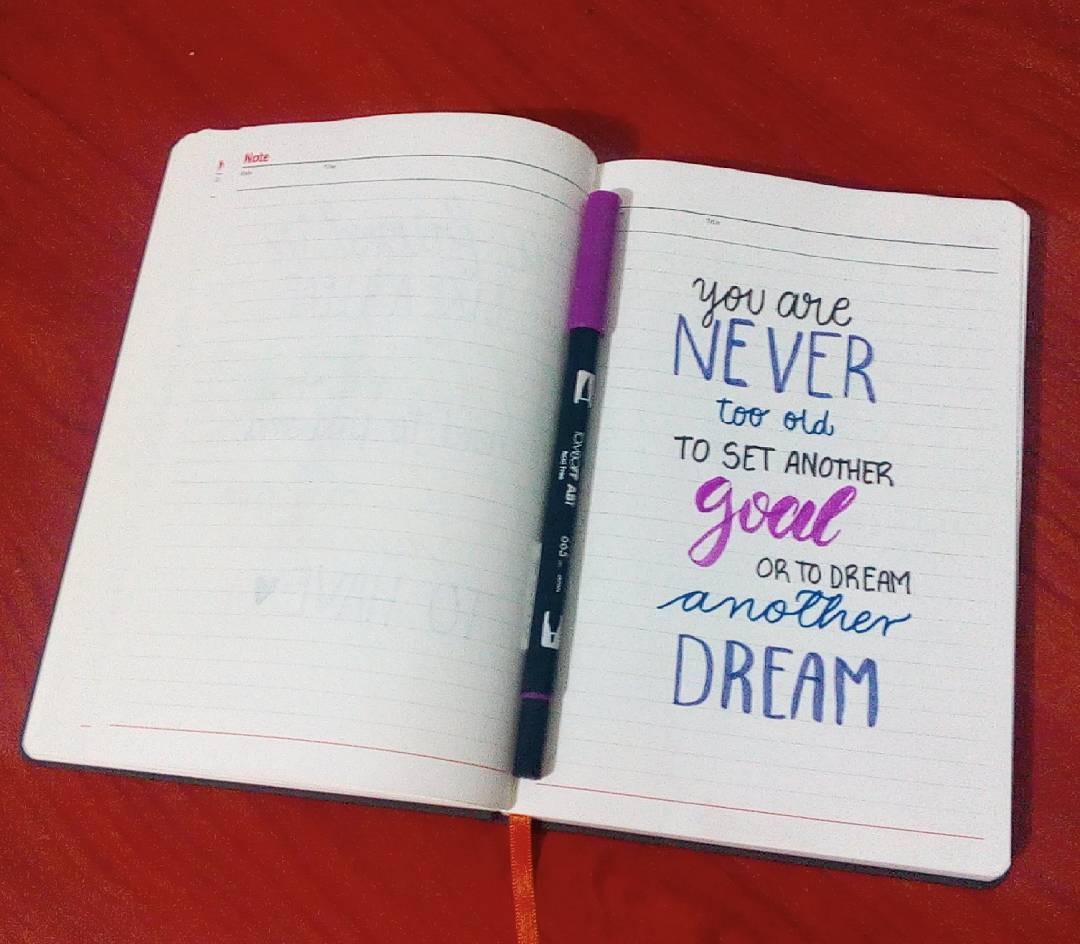 Note
Title
Title
you are
NEVER
too old
TO SET ANOTHER
goal
OR TO DREAM
another
DREAM
Tombow ABT